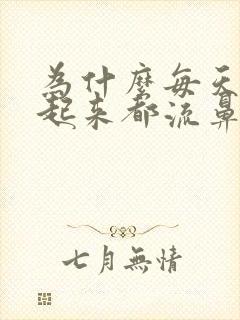 为什麼每天
起来都流鼻
七月無情